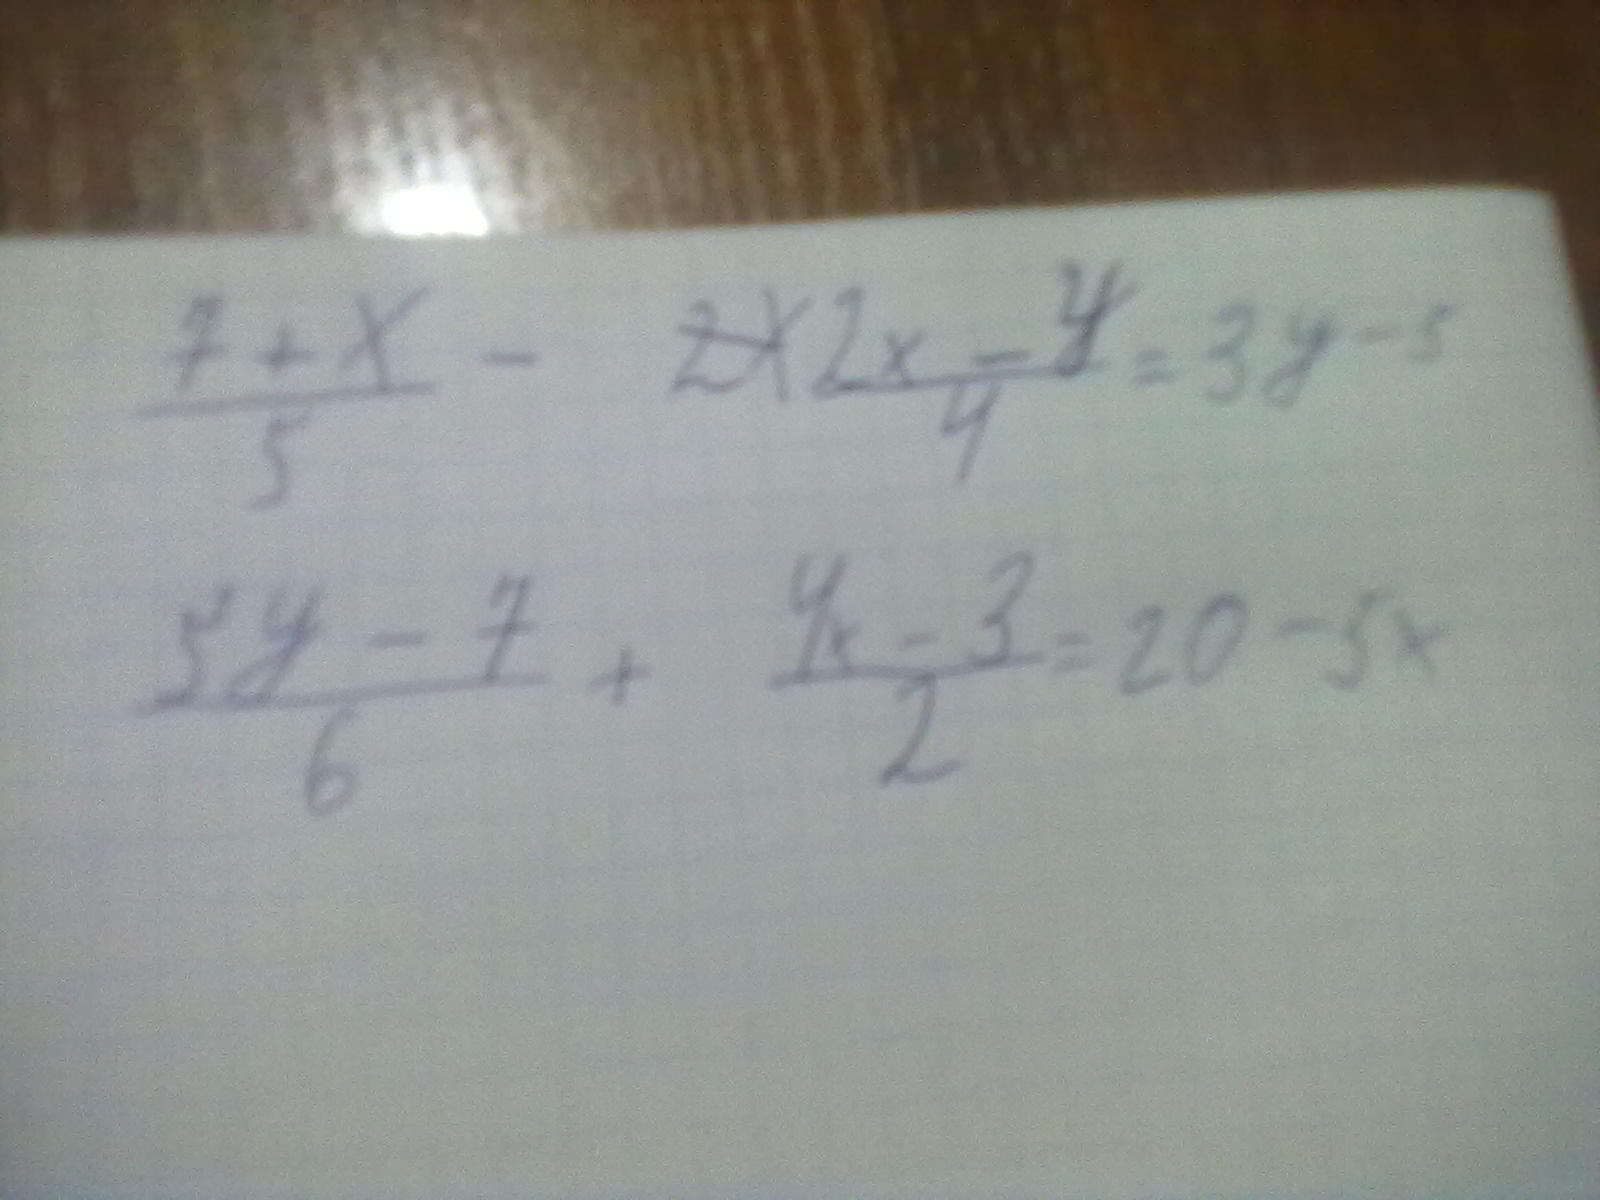 (7 + x)/5 - 2x (2x - y)/4 = 3y - 5
(5y - 7)/6 + (4x - 3)/2 = 20 - 5x